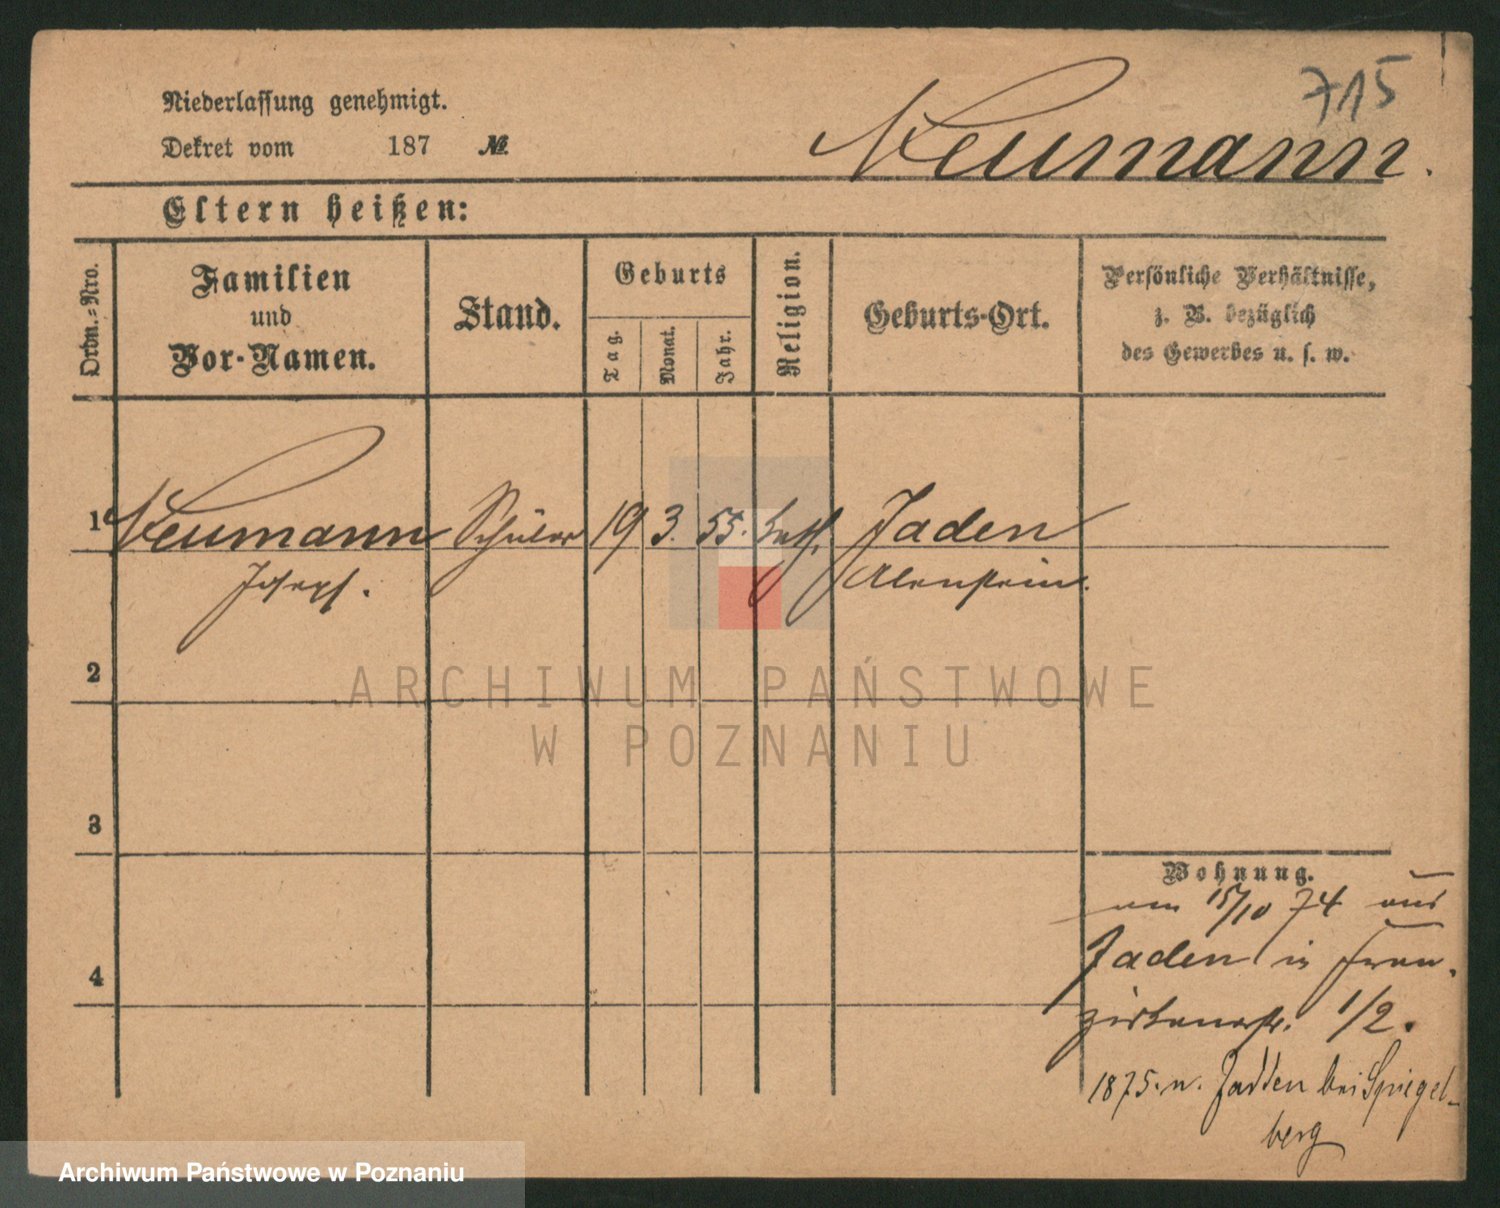 715
Niederlassung genehmigt.
Dekret vom 187 №
Neumann.
Eltern heißen:
Ordn.-Nro.
Familien
und
Vor-Namen.
Stand.
Geburts
Tag.
Monat.
Jahr.
Religion.
Geburts-Ort.
Persönliche Verhältnisse,
z. B. bezüglich
des Gewerbes u. s. w.
1 Neumann Schüler 19 3. 55. kath. Jaden
Joseph. Alenstein.
2
3
4
Wohnung.
am 15/10 74 aus
Jaden in Fran-
ziskanerstr. 1/2.
1875. n. Jadden bei Spiegel-
berg
ARCHIWUM PAŃSTWOWE
W POZNANIU
Archiwum Państwowe w Poznaniu